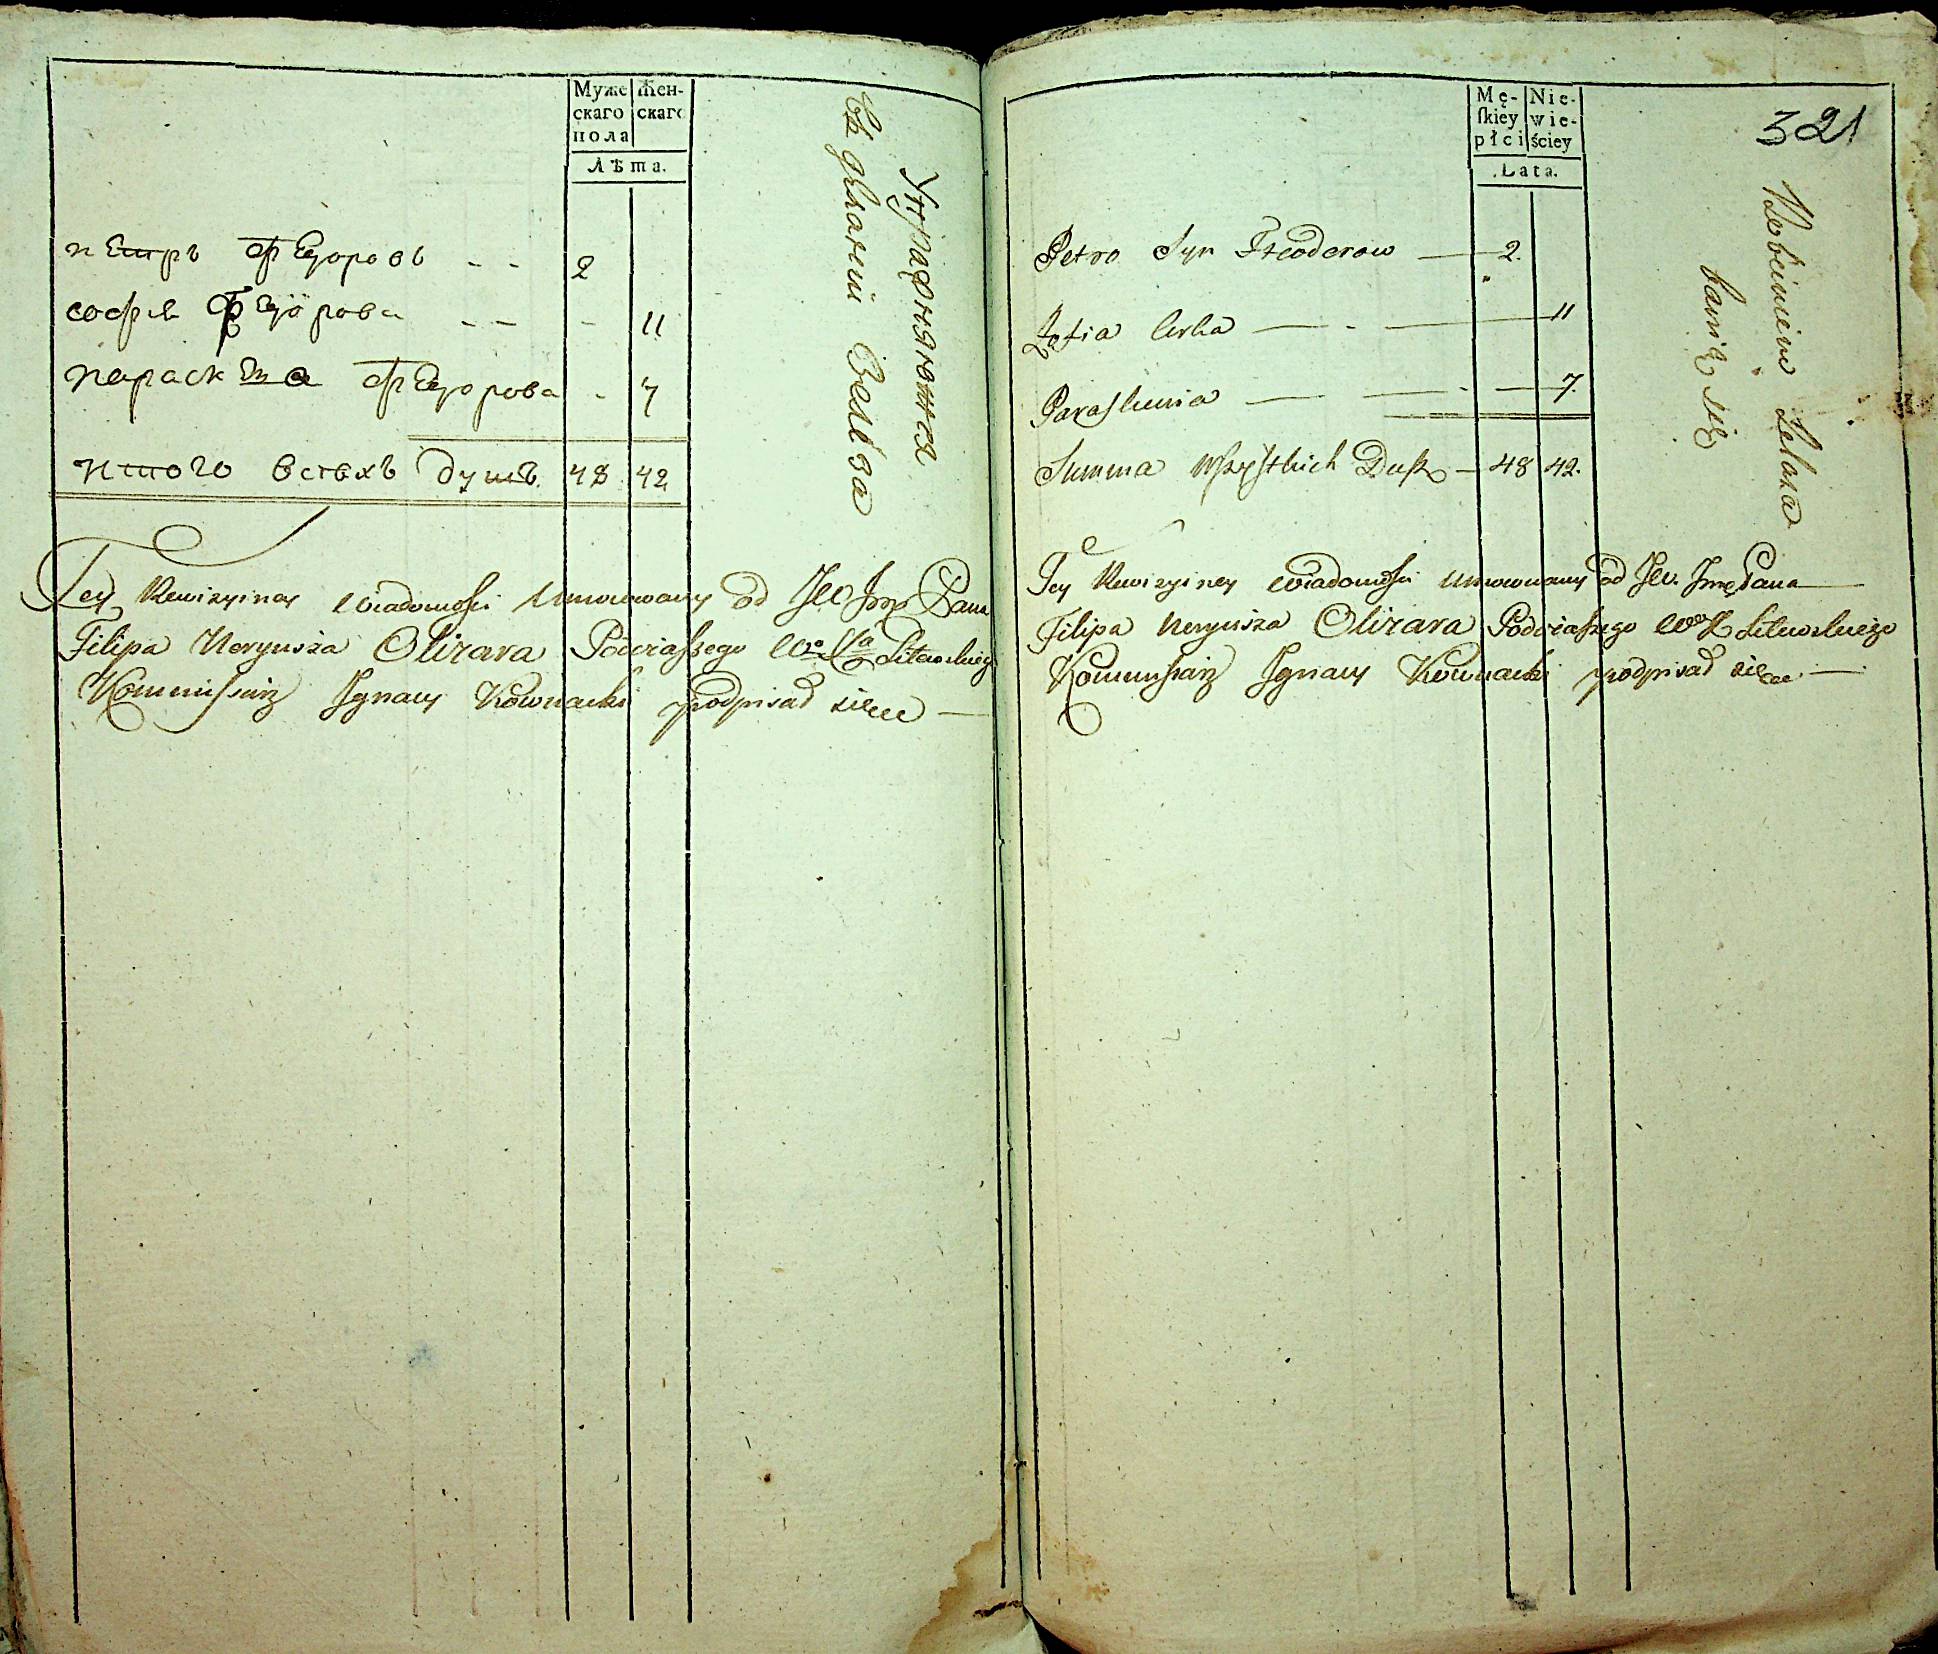 Муже скаго пола
Жен- скаго
Лѣта.
петръ федоровъ - - 2
софия Федорова - - - 11
параскева федорова - 7
итого всехъ душъ 48 42
въ деланіи Зелѣза
упражняются
Tey Rewizyiney wiadomości Umocowany od JW Jmę Pana
Filipa Neryusza Olizara Podczaszego Wo Xa Litewskiego
Kommissarz Ignacy Kownacki podpisał się
321
Mę- skiey płci
Nie- wie- ściey
Lata.
Petro Syn Fteoderow — 2.
Zofia Corka — 11
Paraskiewia — 7.
Summa wszystkich Dusz — 48 42.
W robieniem Zelaza
bawią się
Tey Rewizyiney wiadomości Umocowany od JW. Jmę Pana
Filipa Neryusza Olizara Podczaszego WoX Litewskiego
Kommissarz Ignacy Kownacki podpisał się